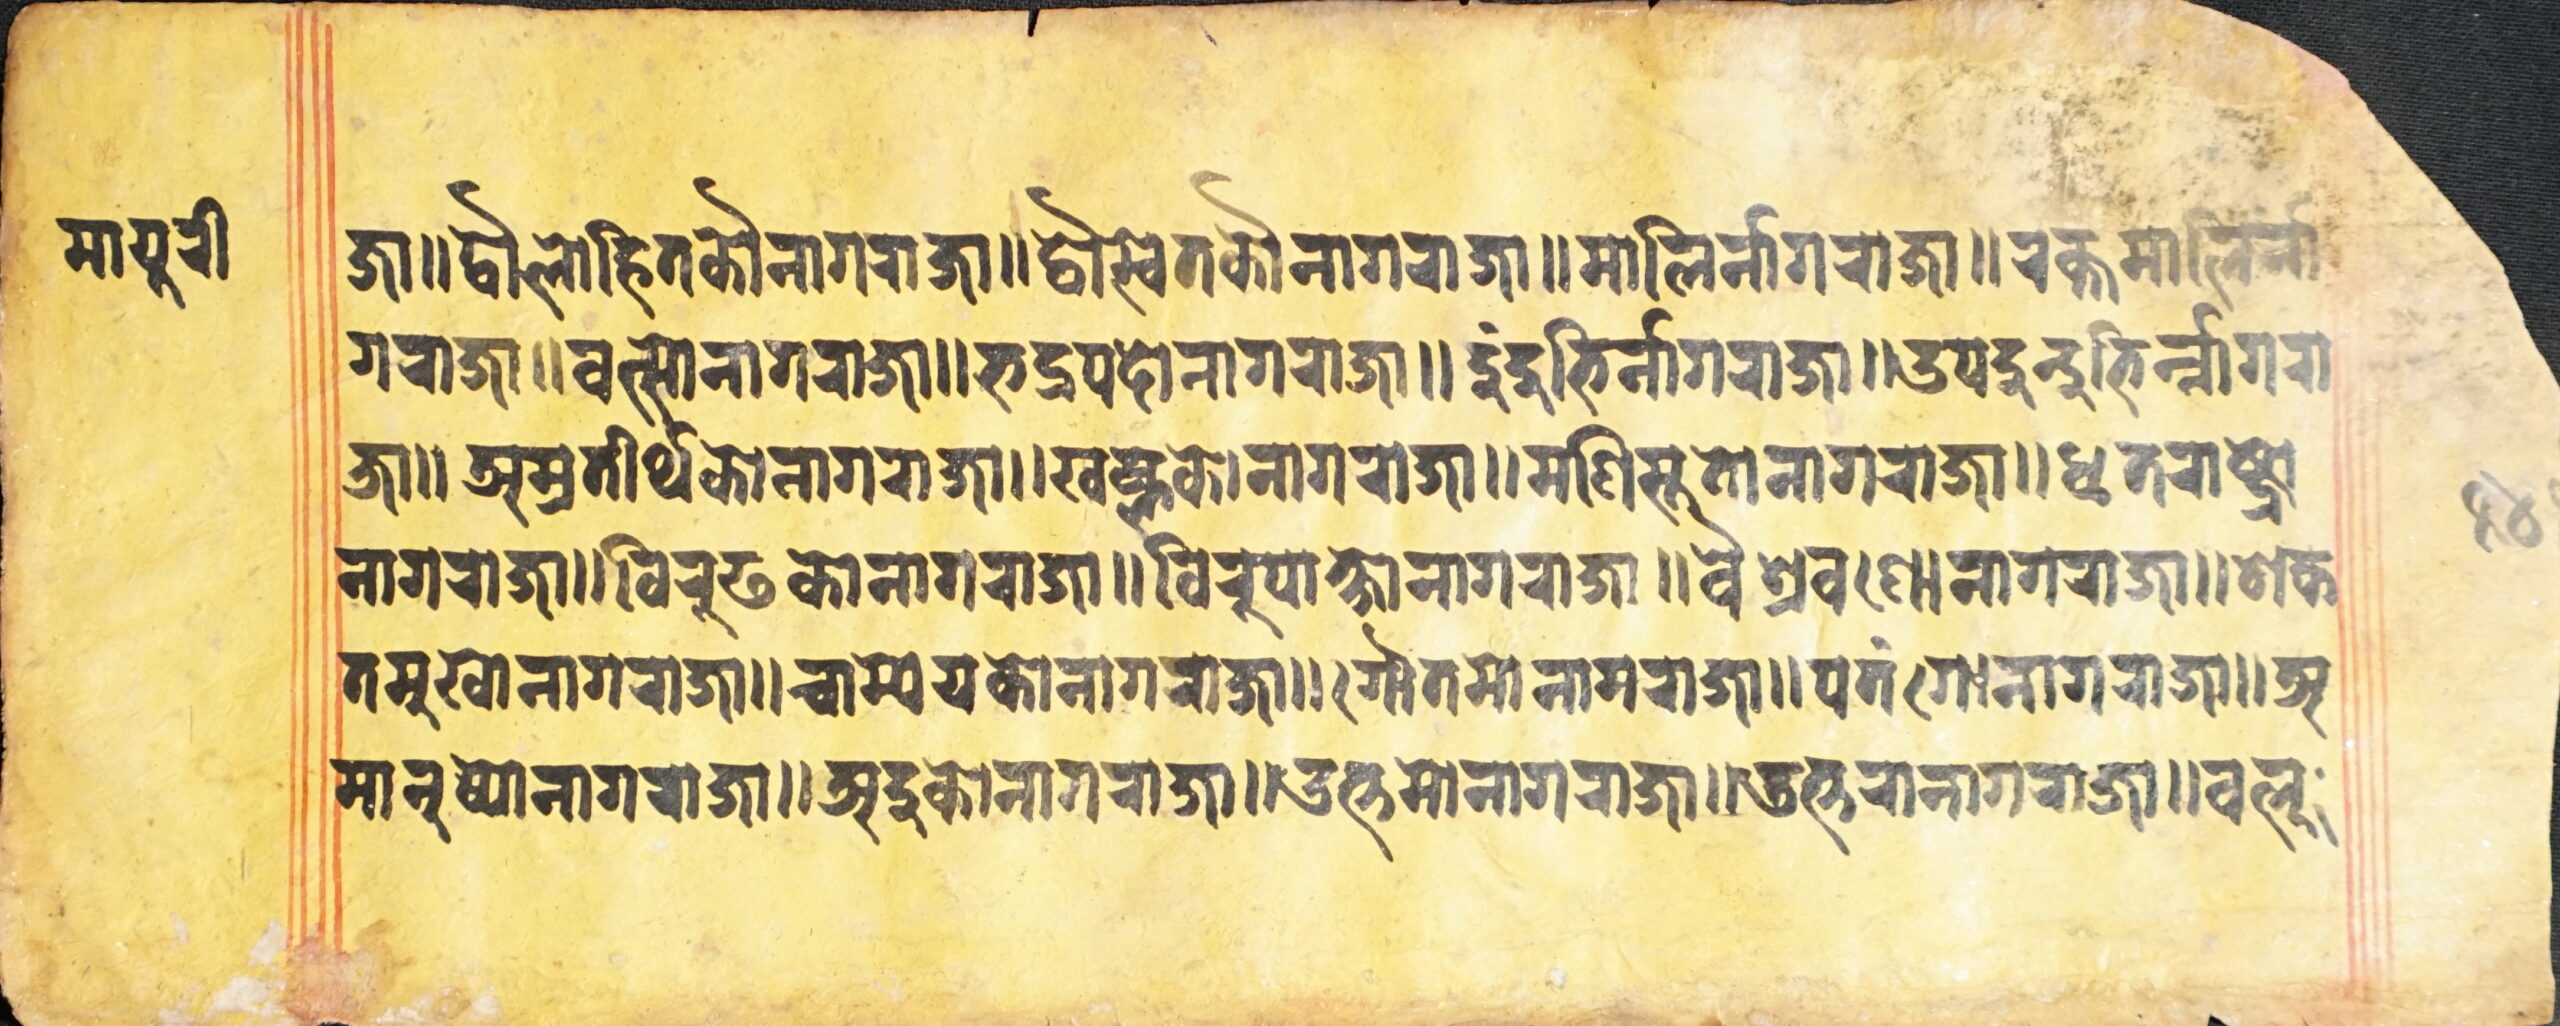 मायुरी
जा॥द्वौलोहितकौनागराजा॥द्वौस्वेतकौनागराजा॥मालिर्नागराजा॥रक्तमालिर्ना
गराजा॥वत्सोनागराजा॥रुद्रपदोनागराजा॥दुंदुभिर्नागराजा॥उपदुन्दुभिर्न्नागरा
जा॥अम्रतीर्थकोनागराजा॥नागराजा॥मणिसुतोनागराजा॥धृतराष्ट्रो
नागराजा॥विरुढकोनागराजा॥विरुपाक्षोनागराजा॥वैश्रवणोनागराजा॥शक
तमुखोनागराजा॥चाम्पेयकोनागराजा॥गौतमोनामराजा॥पतंगोनागराजा॥अ
मानुष्योनागराजा॥अदुकोनागराजा॥उत्तमोनागराजा॥उत्तरानागराजा॥वलू